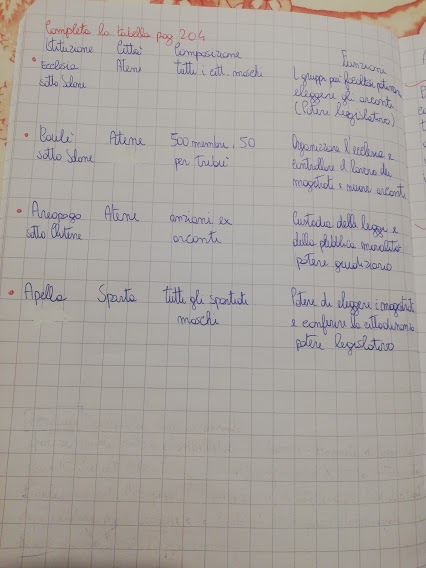 Completa la tabella pag 204
Istituzione Città Composizione Funzioni
• Ecclesia Atene tutti i citt. maschi I gruppi più facoltosi potevano
sotto Solone eleggere gli arconti
(Potere legislativo)
• Boulé Atene 500 membri, 50 Organizzare l'ecclesia e
sotto Solone per tribù controllare il lavoro dei
magistrati e nuovi arconti
• Areopago Atene anziani ex Custodia delle leggi e
sotto Clistene arconti della pubblica moralità
potere giudiziario
• Apella Sparta tutti gli spartiati Potere di eleggere i magistrati
maschi e conferire la cittadinanza
potere legislativo